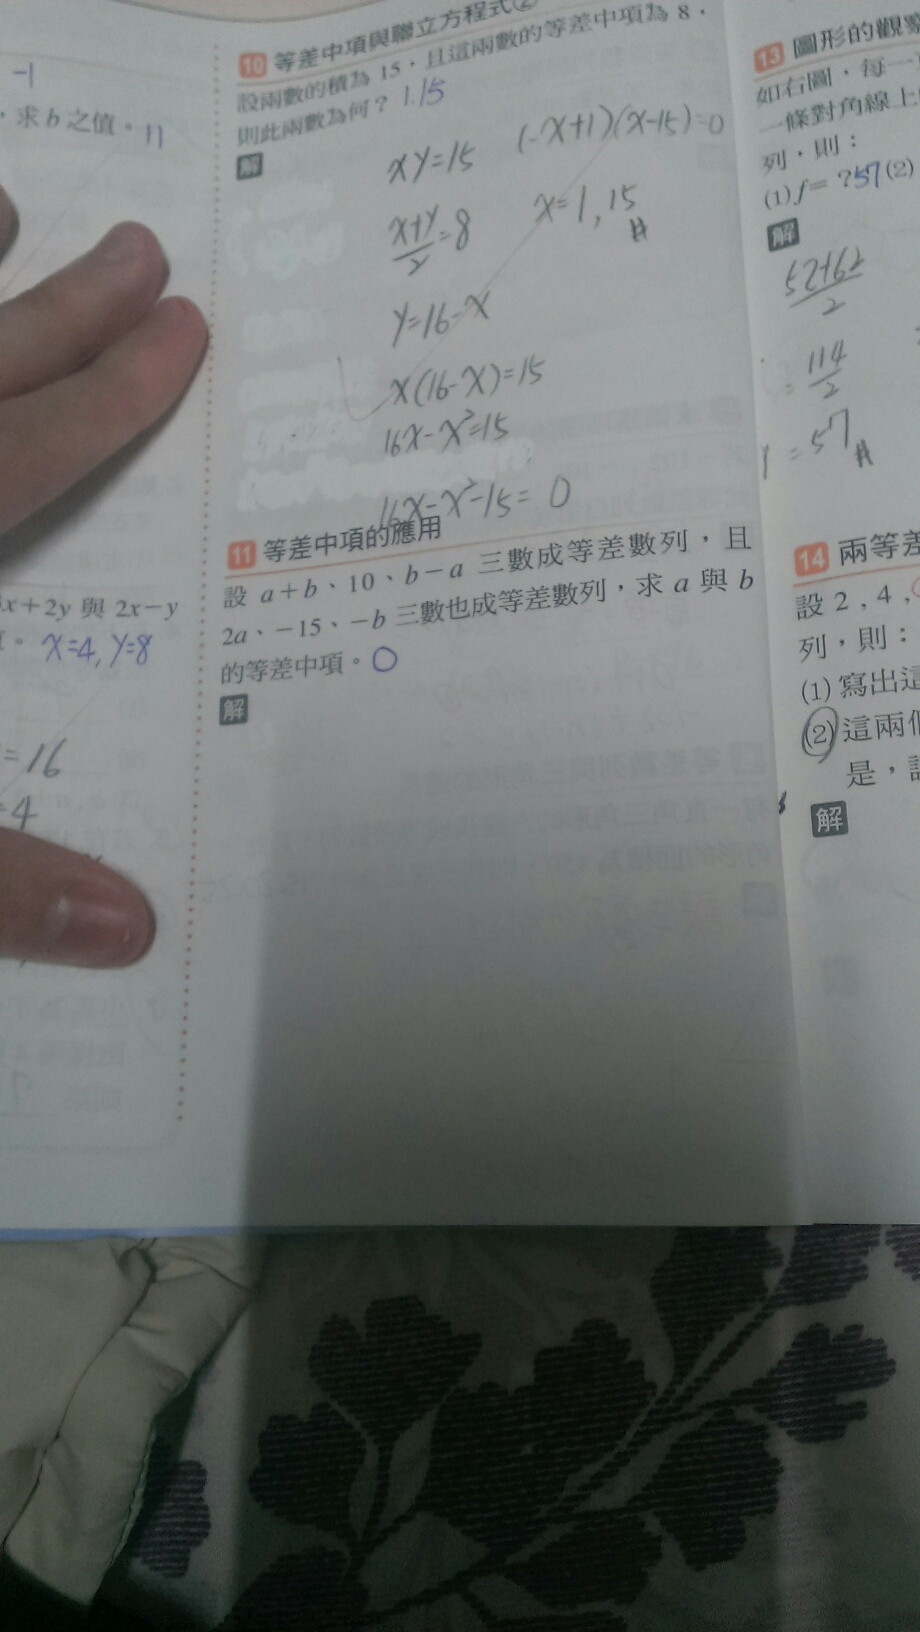 -1
，求 b 之值。11
x+2y 與 2x-y
。x=4, y=8
=16
=4
10 等差中項與聯立方程式(2)
設兩數的積為 15，且這兩數的等差中項為 8，
則此兩數為何？1.15
解
xy=15
(-x+1)(x-15)=0
x+y/2=8
x=1, 15
y=16-x
x(16-x)=15
16x-x²=15
16x-x²-15=0
11 等差中項的應用
設 a+b、10、b-a 三數成等差數列，且
2a、-15、-b 三數也成等差數列，求 a 與 b
的等差中項。0
解
13 圖形的觀察
如右圖，每一
一條對角線上
列，則：
(1) f= ?57 (2)
解
52+62/2
=114/2
=57
14 兩等差
設 2 , 4 ,
列，則：
(1) 寫出這
(2) 這兩個
是，請
解